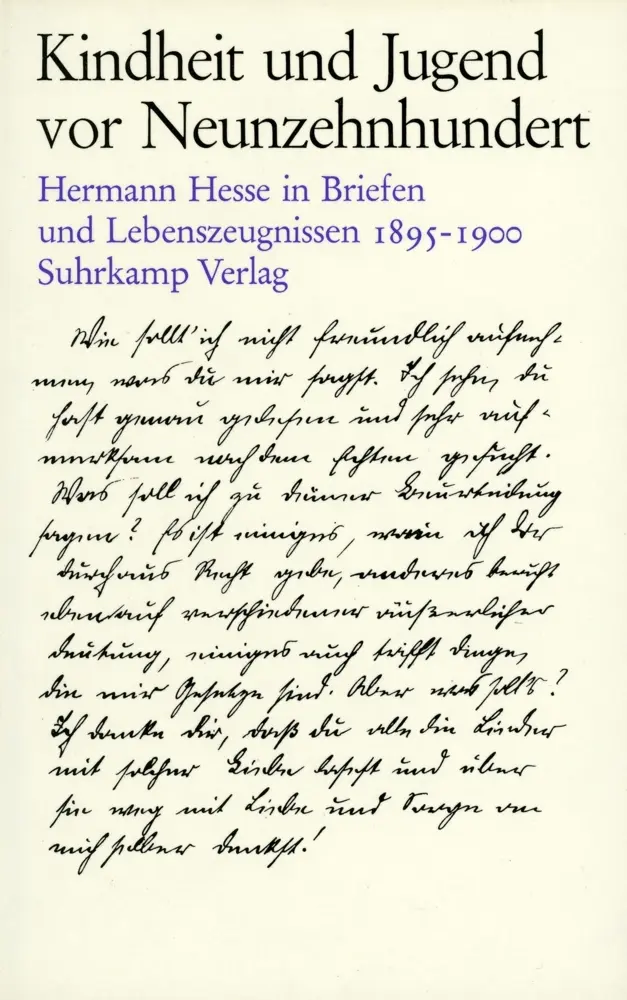 Kindheit und Jugend
vor Neunzehnhundert
Hermann Hesse in Briefen
und Lebenszeugnissen 1895-1900
Suhrkamp Verlag
Wie sollt' ich nicht freundlich aufneh-
men, was du mir sagst. Ich sehe, du
hast genau gelesen und sehr auf-
merksam nach dem Echten gesucht.
Was soll ich zu deiner Beurteilung
sagen? Es ist einiges, worin ich dir
durchaus Recht gebe, anderes beruht
eben auf verschiedener äußerlicher
Deutung, einiges auch trifft Dinge,
die mir Gesetze sind. Aber was solls?
Ich danke dir, daß du alle die Lieder
mit solcher Liebe lasest und über
sie weg mit Liebe und Sorge an
mich selber denkst!